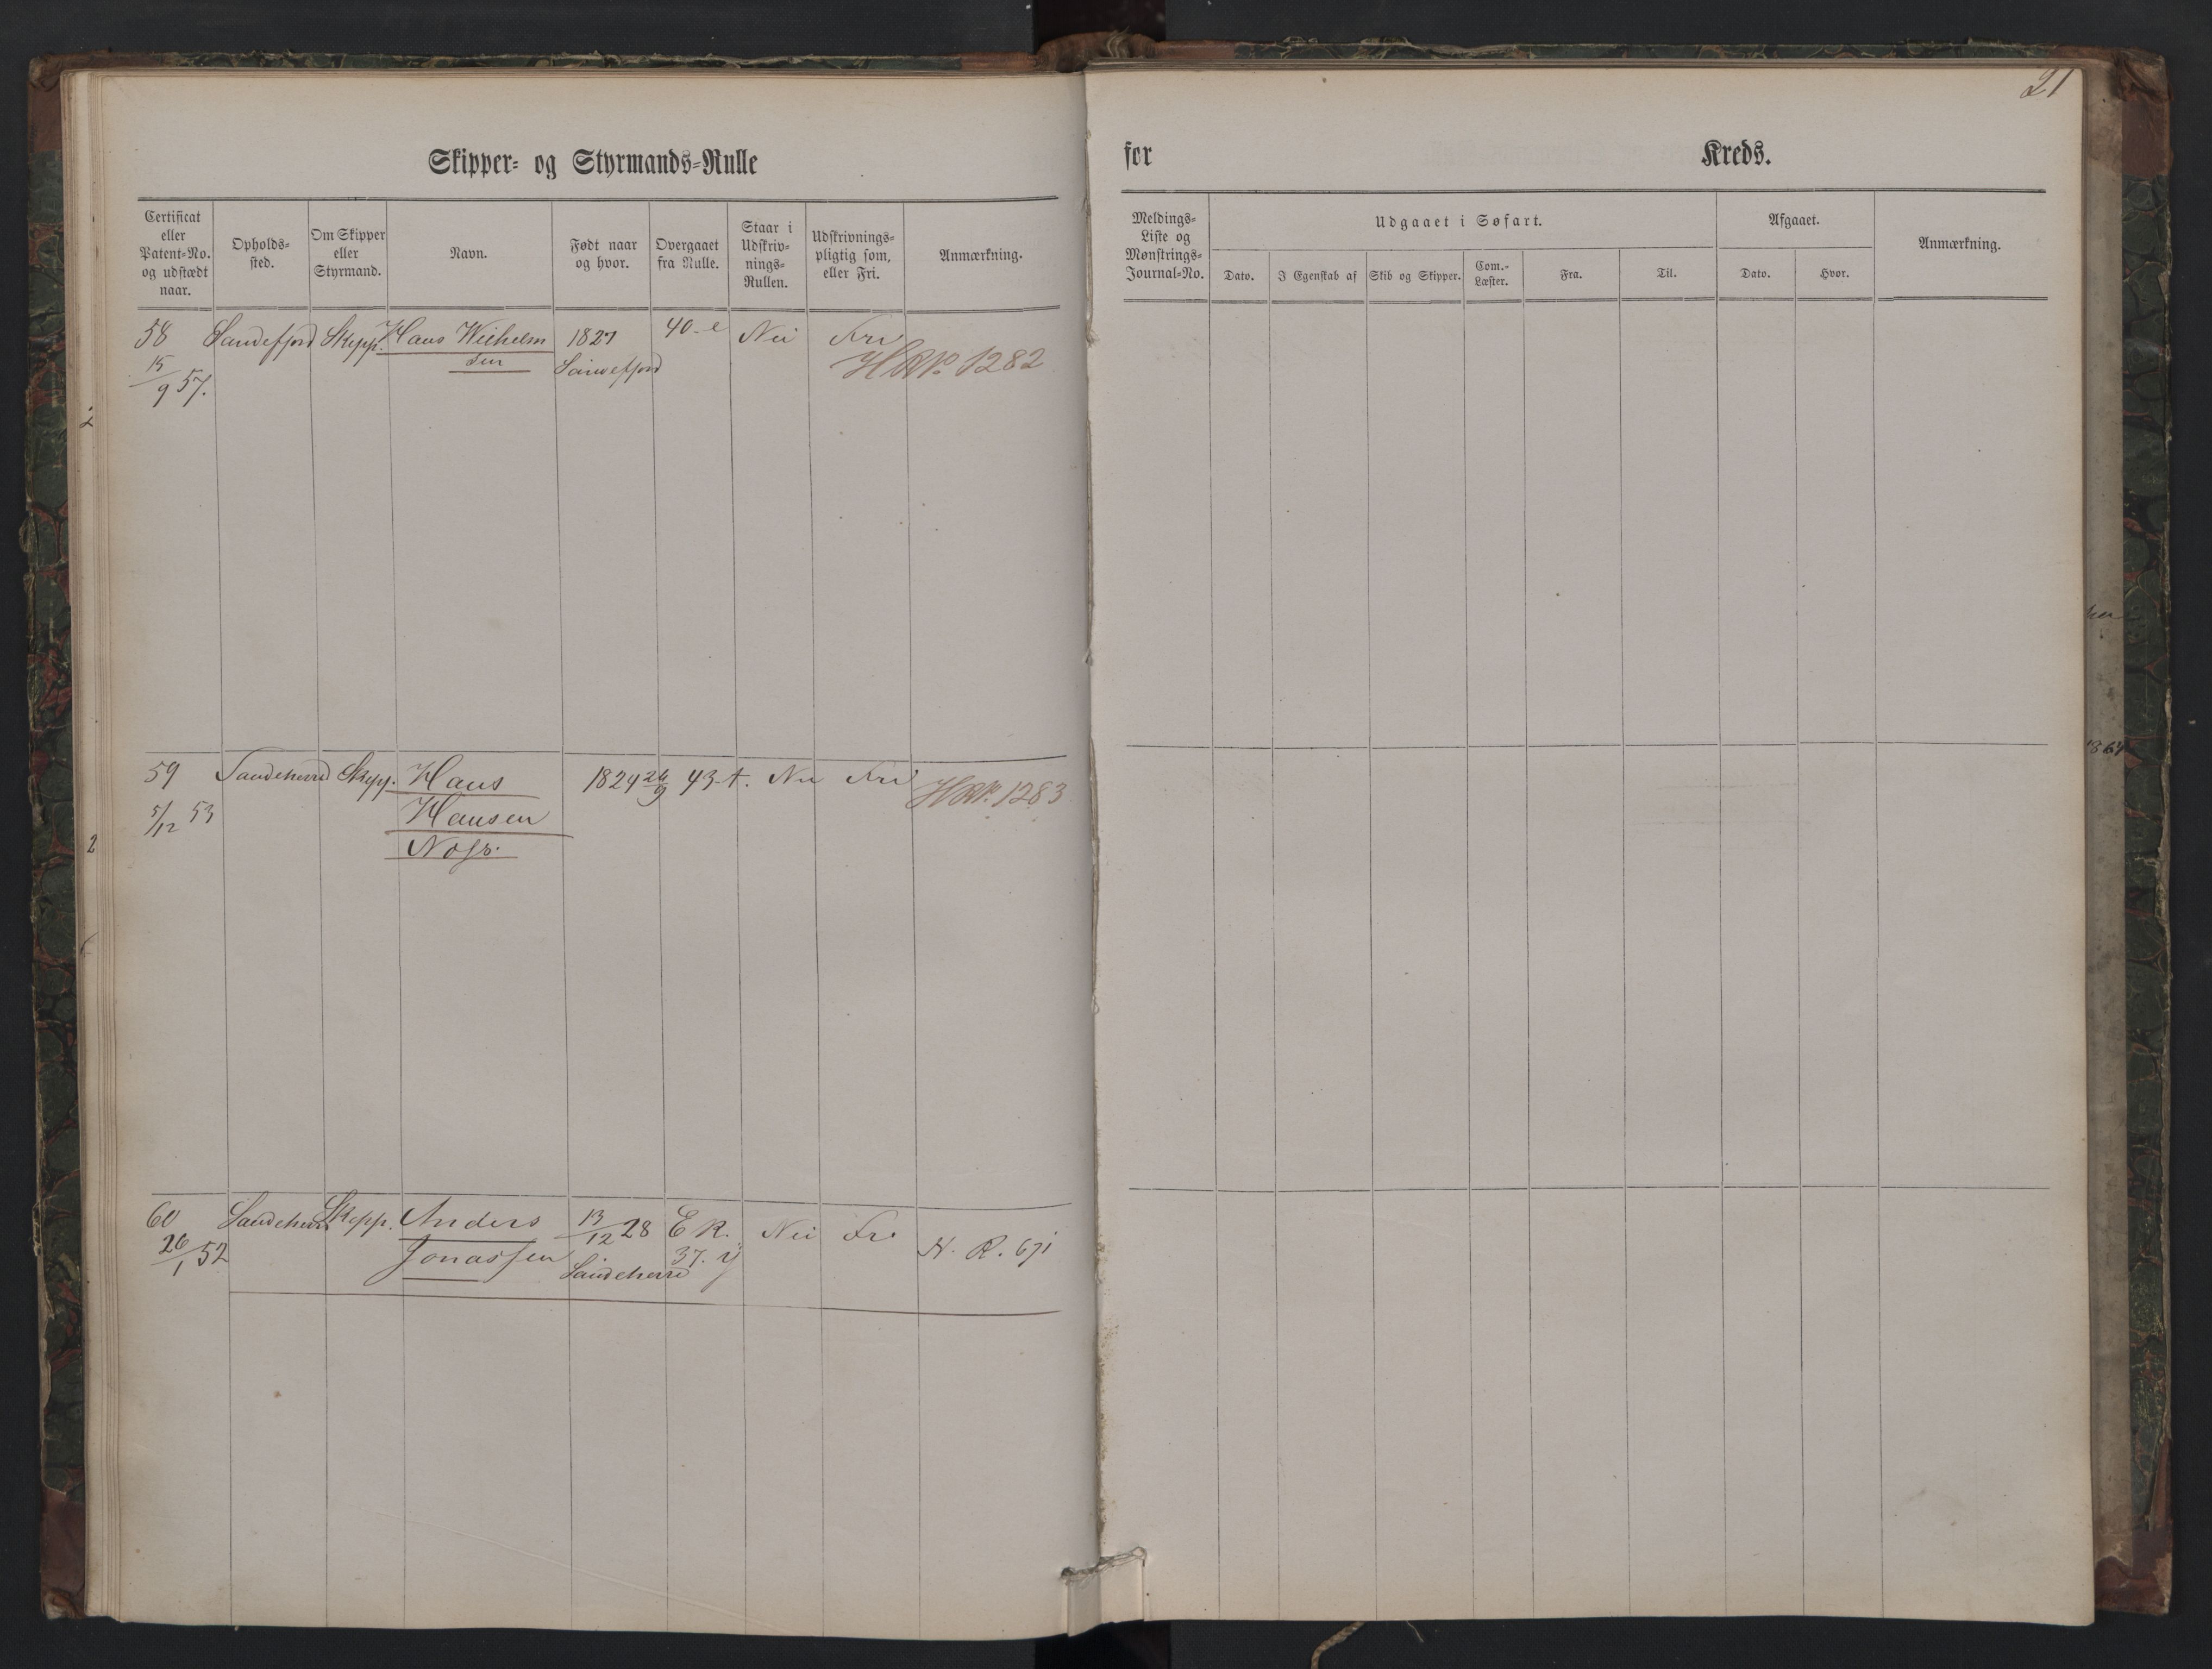 21
Skipper- og Styrmands-Rulle
for Kreds.
Certificat eller Patent-No. og udstædt naar.
Opholds-sted.
Om Skipper eller Styrmand.
Navn.
Født naar og hvor.
Overgaaet fra Rulle.
Staar i Udskriv-nings-Rullen.
Udskrivnings-pligtig som, eller Fri.
Anmærkning.
Meldings-Liste og Mønstrings-Journal-No.
Udgaaet i Søfart.
Dato.
I Egenskab af
Skib og Skipper.
Com.-Læster.
Fra.
Til.
Afgaaet.
Dato.
Hvor.
Anmærkning.
58 Sandefjord Skipp. Hans Wilhelm 1827 40-e Nei Fri
15/9 57. sen Sandefjord HRNo. 1282
59 Sandeherred Skipp. Hans 1824 26/9 43-t. Nei Fri HRNo. 1283
5/12 53 Hansen
60 Sandeherred Skipp. Anders 13/12 28 E R. Nei Fri N. R. 671
26/1 52 Jonassen Sandeherred 37. y